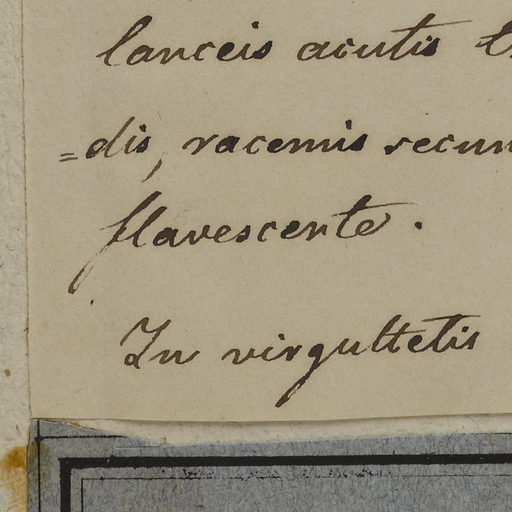 lanceis acutis
=dis, racemis secun
flavescente.
In virgultetis